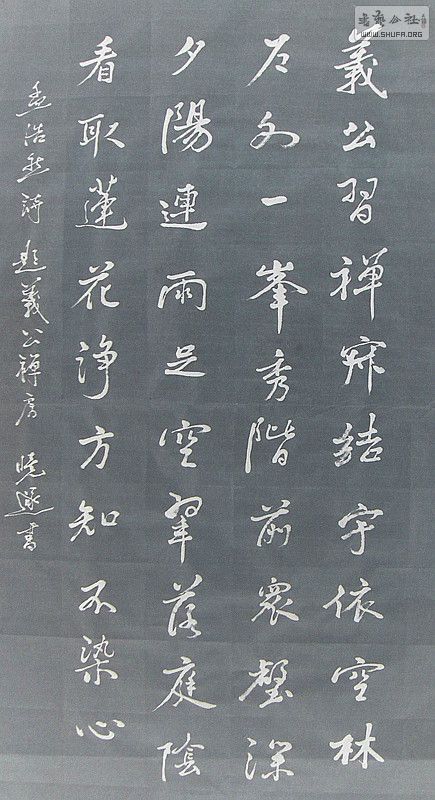 義公習禪寂結宇依空林
户外一峯秀階前衆壑深
夕陽連雨足空翠落庭陰
看取蓮花淨方知不染心
孟浩然詩題義公禪房 曉書
書藝公社
WWW.SHUFA.ORG